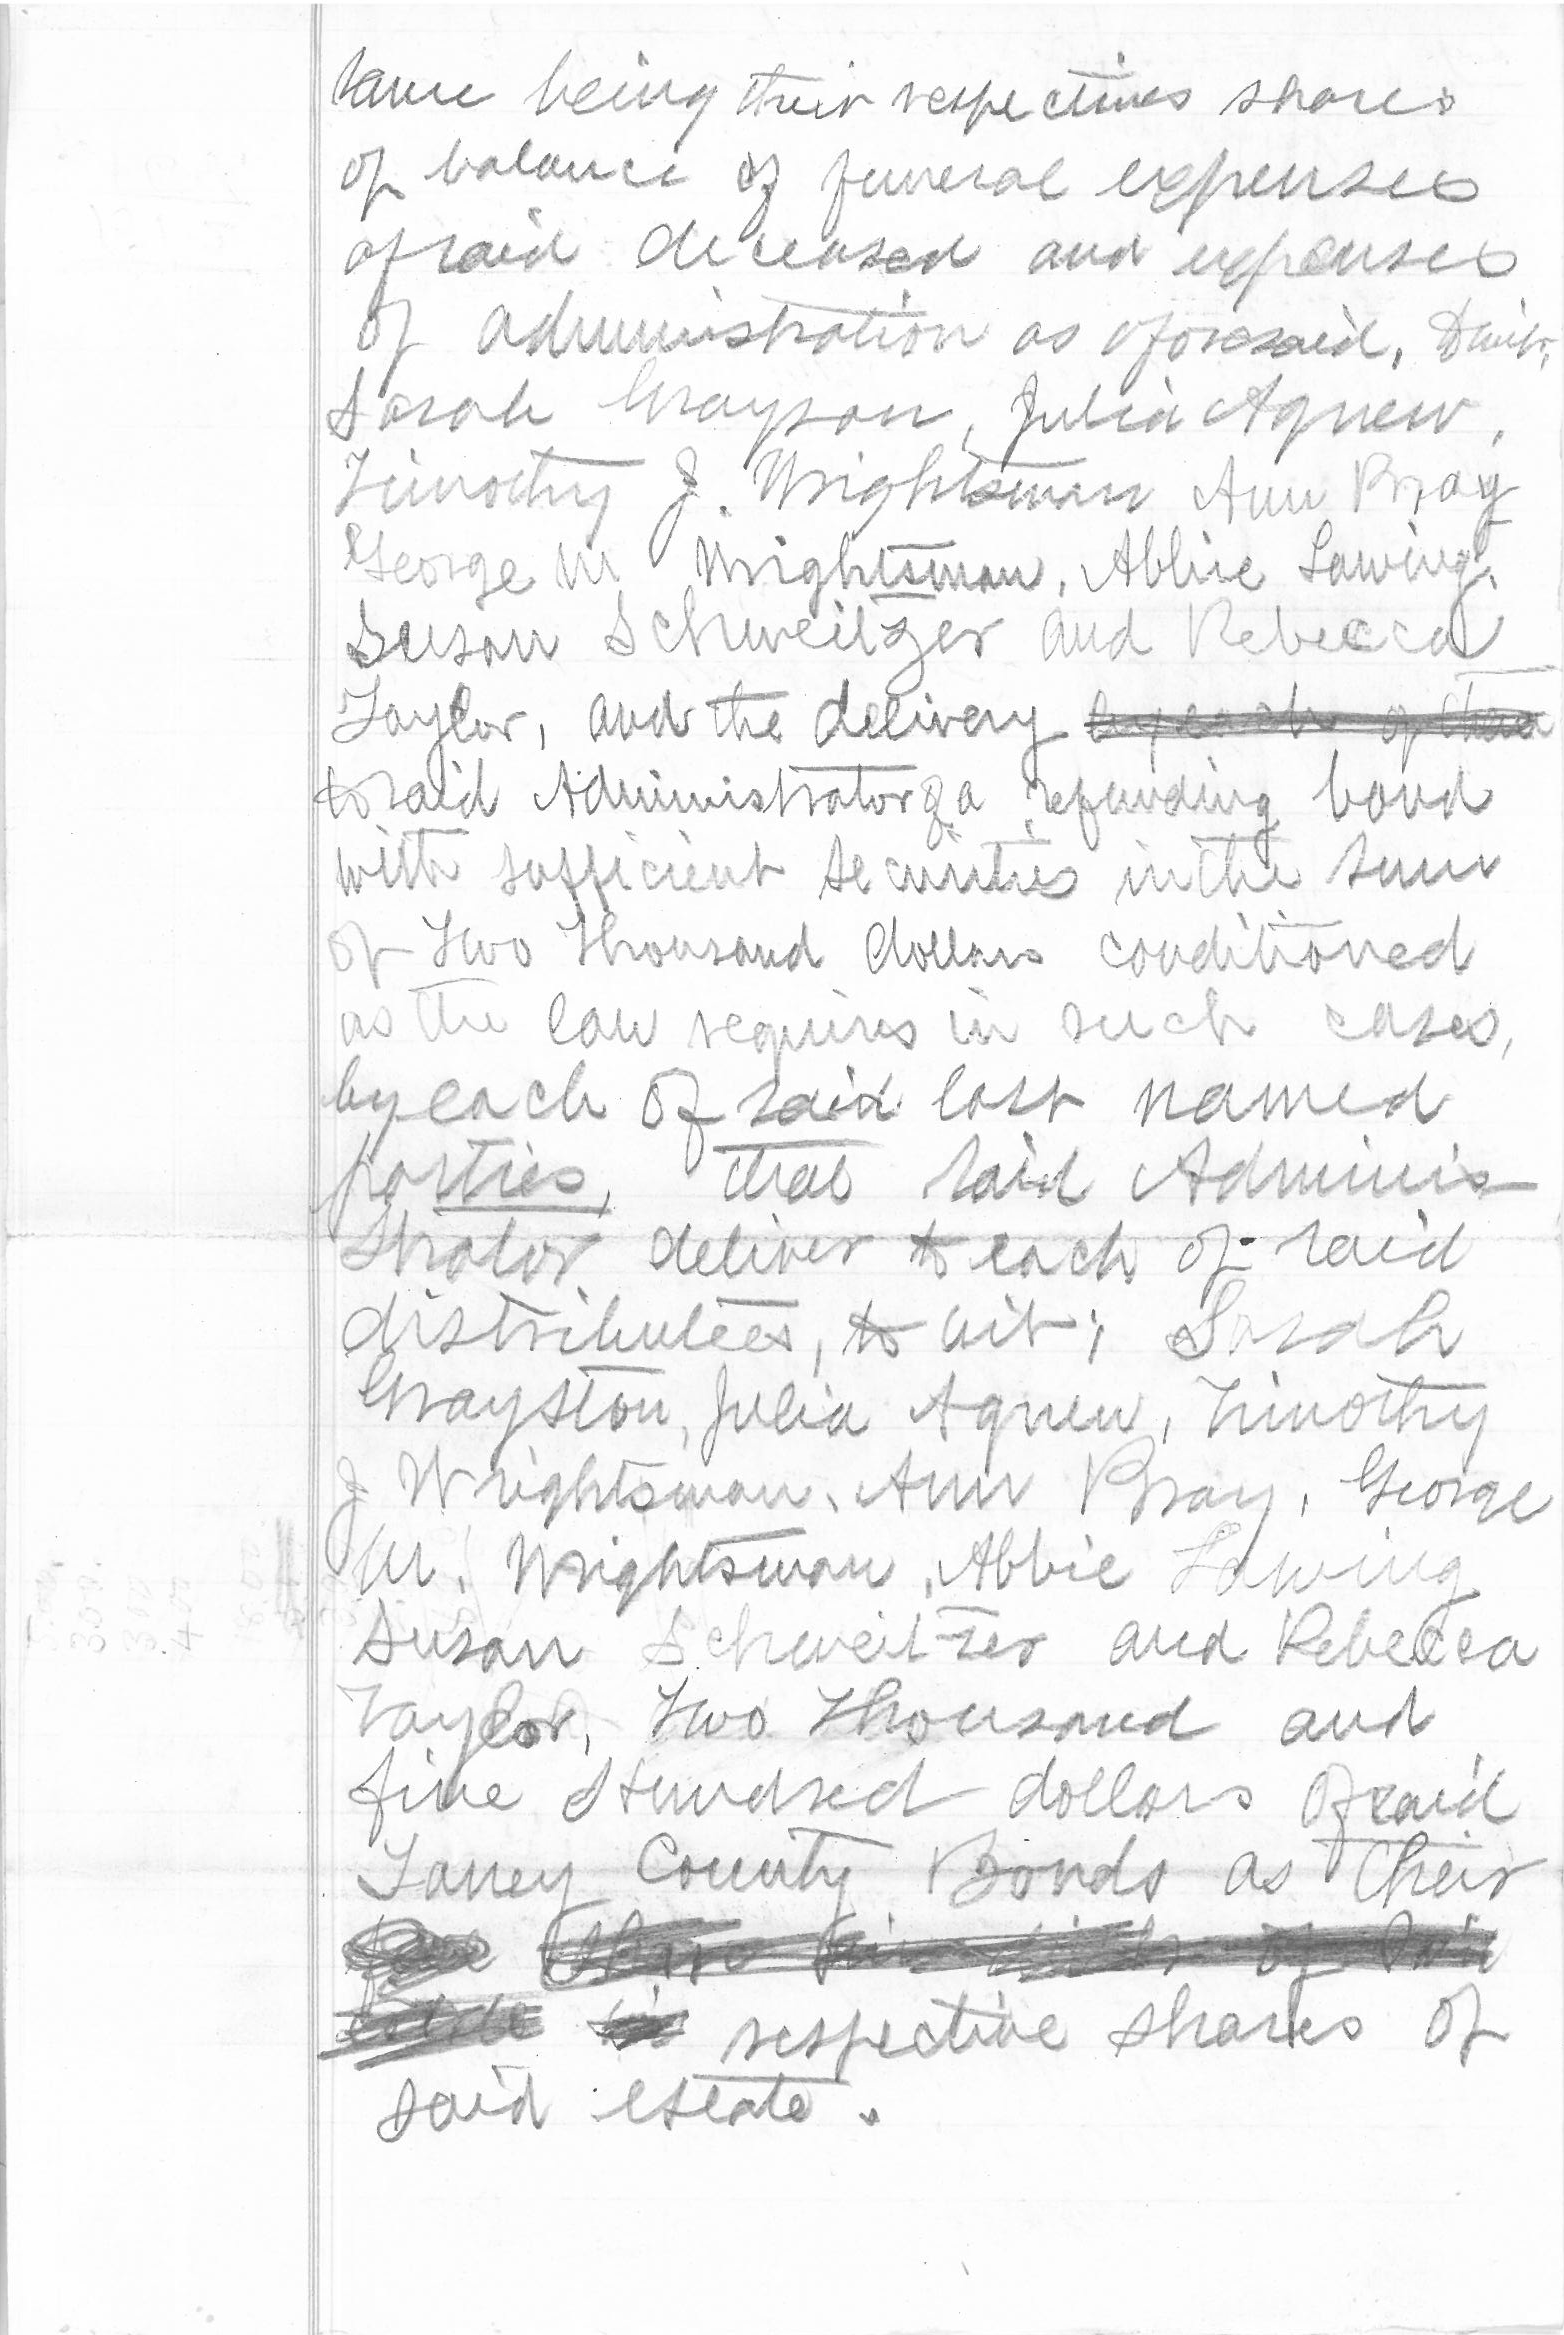 same being their respectives shares
of balance of funeral expenses
of said deceased and expenses
of administration as aforesaid,
Sarah Grayson, Julia Agnew,
Timothy J. Wrightsman Ann Bray
George M Wrightsman, Abbie Lawing,
Susan Schweitzer and Rebecca
Taylor, and the delivery by each of them
to said Administrator of a refunding bond
with sufficient securities in the sum
of Two Thousand dollars conditioned
as the law requires in such cases,
by each of said last named
parties, that said Adminis
trator deliver to each of said
distributees, to wit; Sarah
Grayston, Julia Agnew, Timothy
J Wrightsman, Ann Bray, George
M. Wrightsman, Abbie Lawing
Susan Schweitzer and Rebecca
Taylor, Two Thousand and
five Hundred dollars of said
Taney County Bonds as their
respective shares of
said estate.